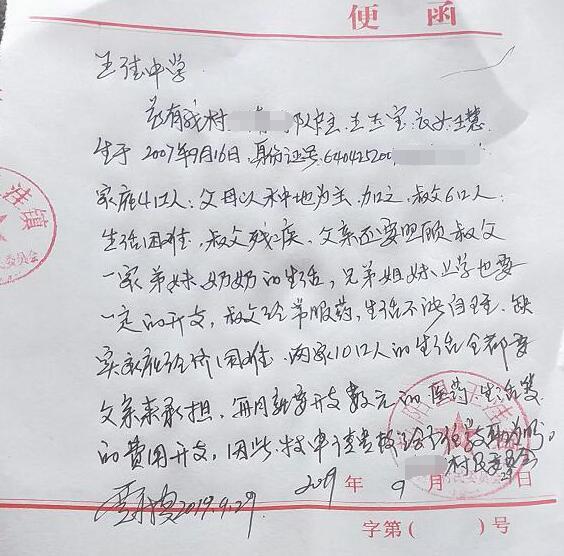 便函
王洼中学
兹有我村 队 王 宝长女王慧
生于2007年9月16日,身份证号640425200
家庭4口人:父母以种地为主,加之,叔父6口人:
生活困难,叔父残疾,父亲还要照顾叔父
一家弟妹、奶奶的生活,兄弟姐妹上学也要
一定的开支,叔父经常服药,生活不能自主,缺
实家庭经济困难,两家10口人的生活全都要
父亲来承担,每月就要开支数元的医药、生活等
的费用开支,因此,
村民委员会
2019年9月29日
2019.9.29.
字第( )号